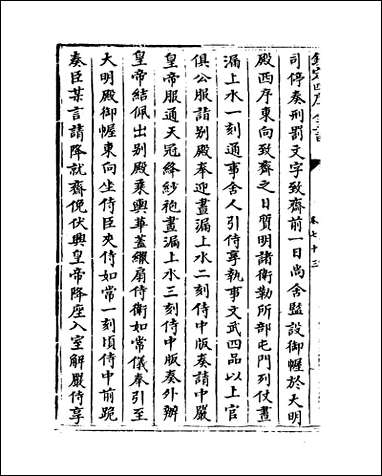 欽定四庫全書
卷七十三
司停奏刑罰文字致齋前一日尚舍監設御幄於大明
殿西序東向致齋之日質明諸衛勒所部屯門列仗晝
漏上水一刻通事舍人引侍享執事文武四品以上官
俱公服詣別殿奉迎晝漏上水二刻侍中版奏請中嚴
皇帝服通天冠絳紗袍晝漏上水三刻侍中版奏外辦
皇帝結佩出別殿乘輿華蓋繖扇侍衛如常儀奉引至
大明殿御幄東向坐侍臣夾侍如常一刻頃侍中前跪
奏臣某言請降就齋俛伏興皇帝降座入室解嚴侍享